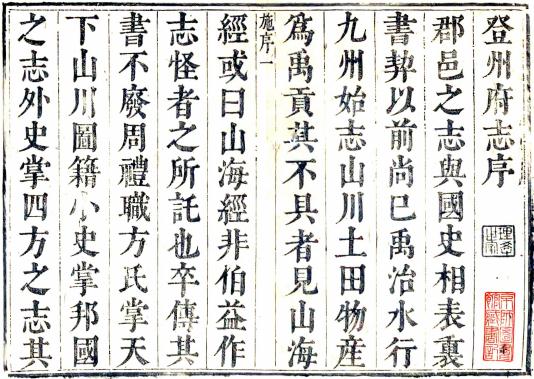 登州府志序
郡邑之志與國史相表裏
書契以前尚已禹治水行
九州始志山川土田物産
爲禹貢其不具者見山海
施序一
經或曰山海經非伯益作
志怪者之所託也卒傳其
書不廢周禮職方氏掌天
下山川圖籍小史掌邦國
之志外史掌四方之志其